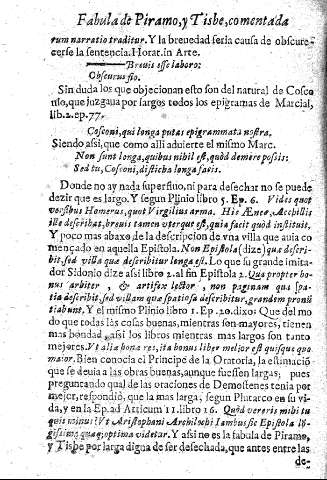 Fabula de Piramo, y Tisbe, comentada
rum narratio traditur. Y la breuedad seria causa de obscure-
cerse la sentencia. Horat. in Arte.
Breuis esse laboro:
Obscurus fio.
Sin duda los que objecionan esto son del natural de Cosco
nio, que juzgaua por largos todos los epigramas de Marcial,
lib. 2. ep. 77.
Cosconi, qui longa putas epigrammata nostra.
Siendo assi, que como alli aduierte el mismo Marc.
Non sunt longa, quibus nihil est, quòd demere possis:
Sed tu, Cosconi, disticha longa facis.
Donde no ay nada superfluo, ni para desechar no se puede
dezir que es largo. Y segun Plinio libro 5. Ep. 6. Vides quot
versibus Homerus, quot Virgilius arma. Hic Æneæ, Acchillis
ille describat, breuis tamen vterque est, quia facit quòd instituit.
Y poco mas abaxo de la descripcion de vna villa que auia co
mençado en aquella Epistola. Non Epistola (dize) quæ descri-
bit, sed villa quæ describitur longa est. Lo que su grande imita-
dor Sidonio dize assi libro 2. al fin Epistola 2. Qua propter bo-
nus arbiter, & artifex lector, non paginam quæ spa-
tia describit, sed villam quæ spatiosa describitur, grandem pronũ
tiabunt. Y el mismo Plinio libro 1. Ep. 20. dixo: Que del mo
do que todas las cosas buenas, mientras son mayores, tienen
mas bondad, assi los libros mientras mas largos son tanto
mejores. Vt aliæ bonæ res, ita bonus liber melior est quisque quo
maior. Bien conocia el Principe de la Oratoria, la estimaciõ
que se deuia a las obras buenas, aunque fuessen largas; pues
preguntando qual de las oraciones de Demostenes tenia por
mejor, respondiò, que la mas larga; segun Plutarco en su vi
da, y en la Ep. ad Atticum 11. libro 16. Quòd vereris mihi tu
quit minus? Vt Aristophani Archilochi Iambus sic Epistola lõ
gissima quæq; optima videtur. Y assi no es la fabula de Piramo,
y Tisbe por larga digna de ser desechada, que antes entre las
de-